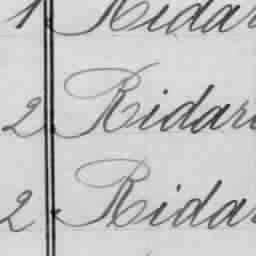 1 Ridar
2 Ridar
2 Ridar